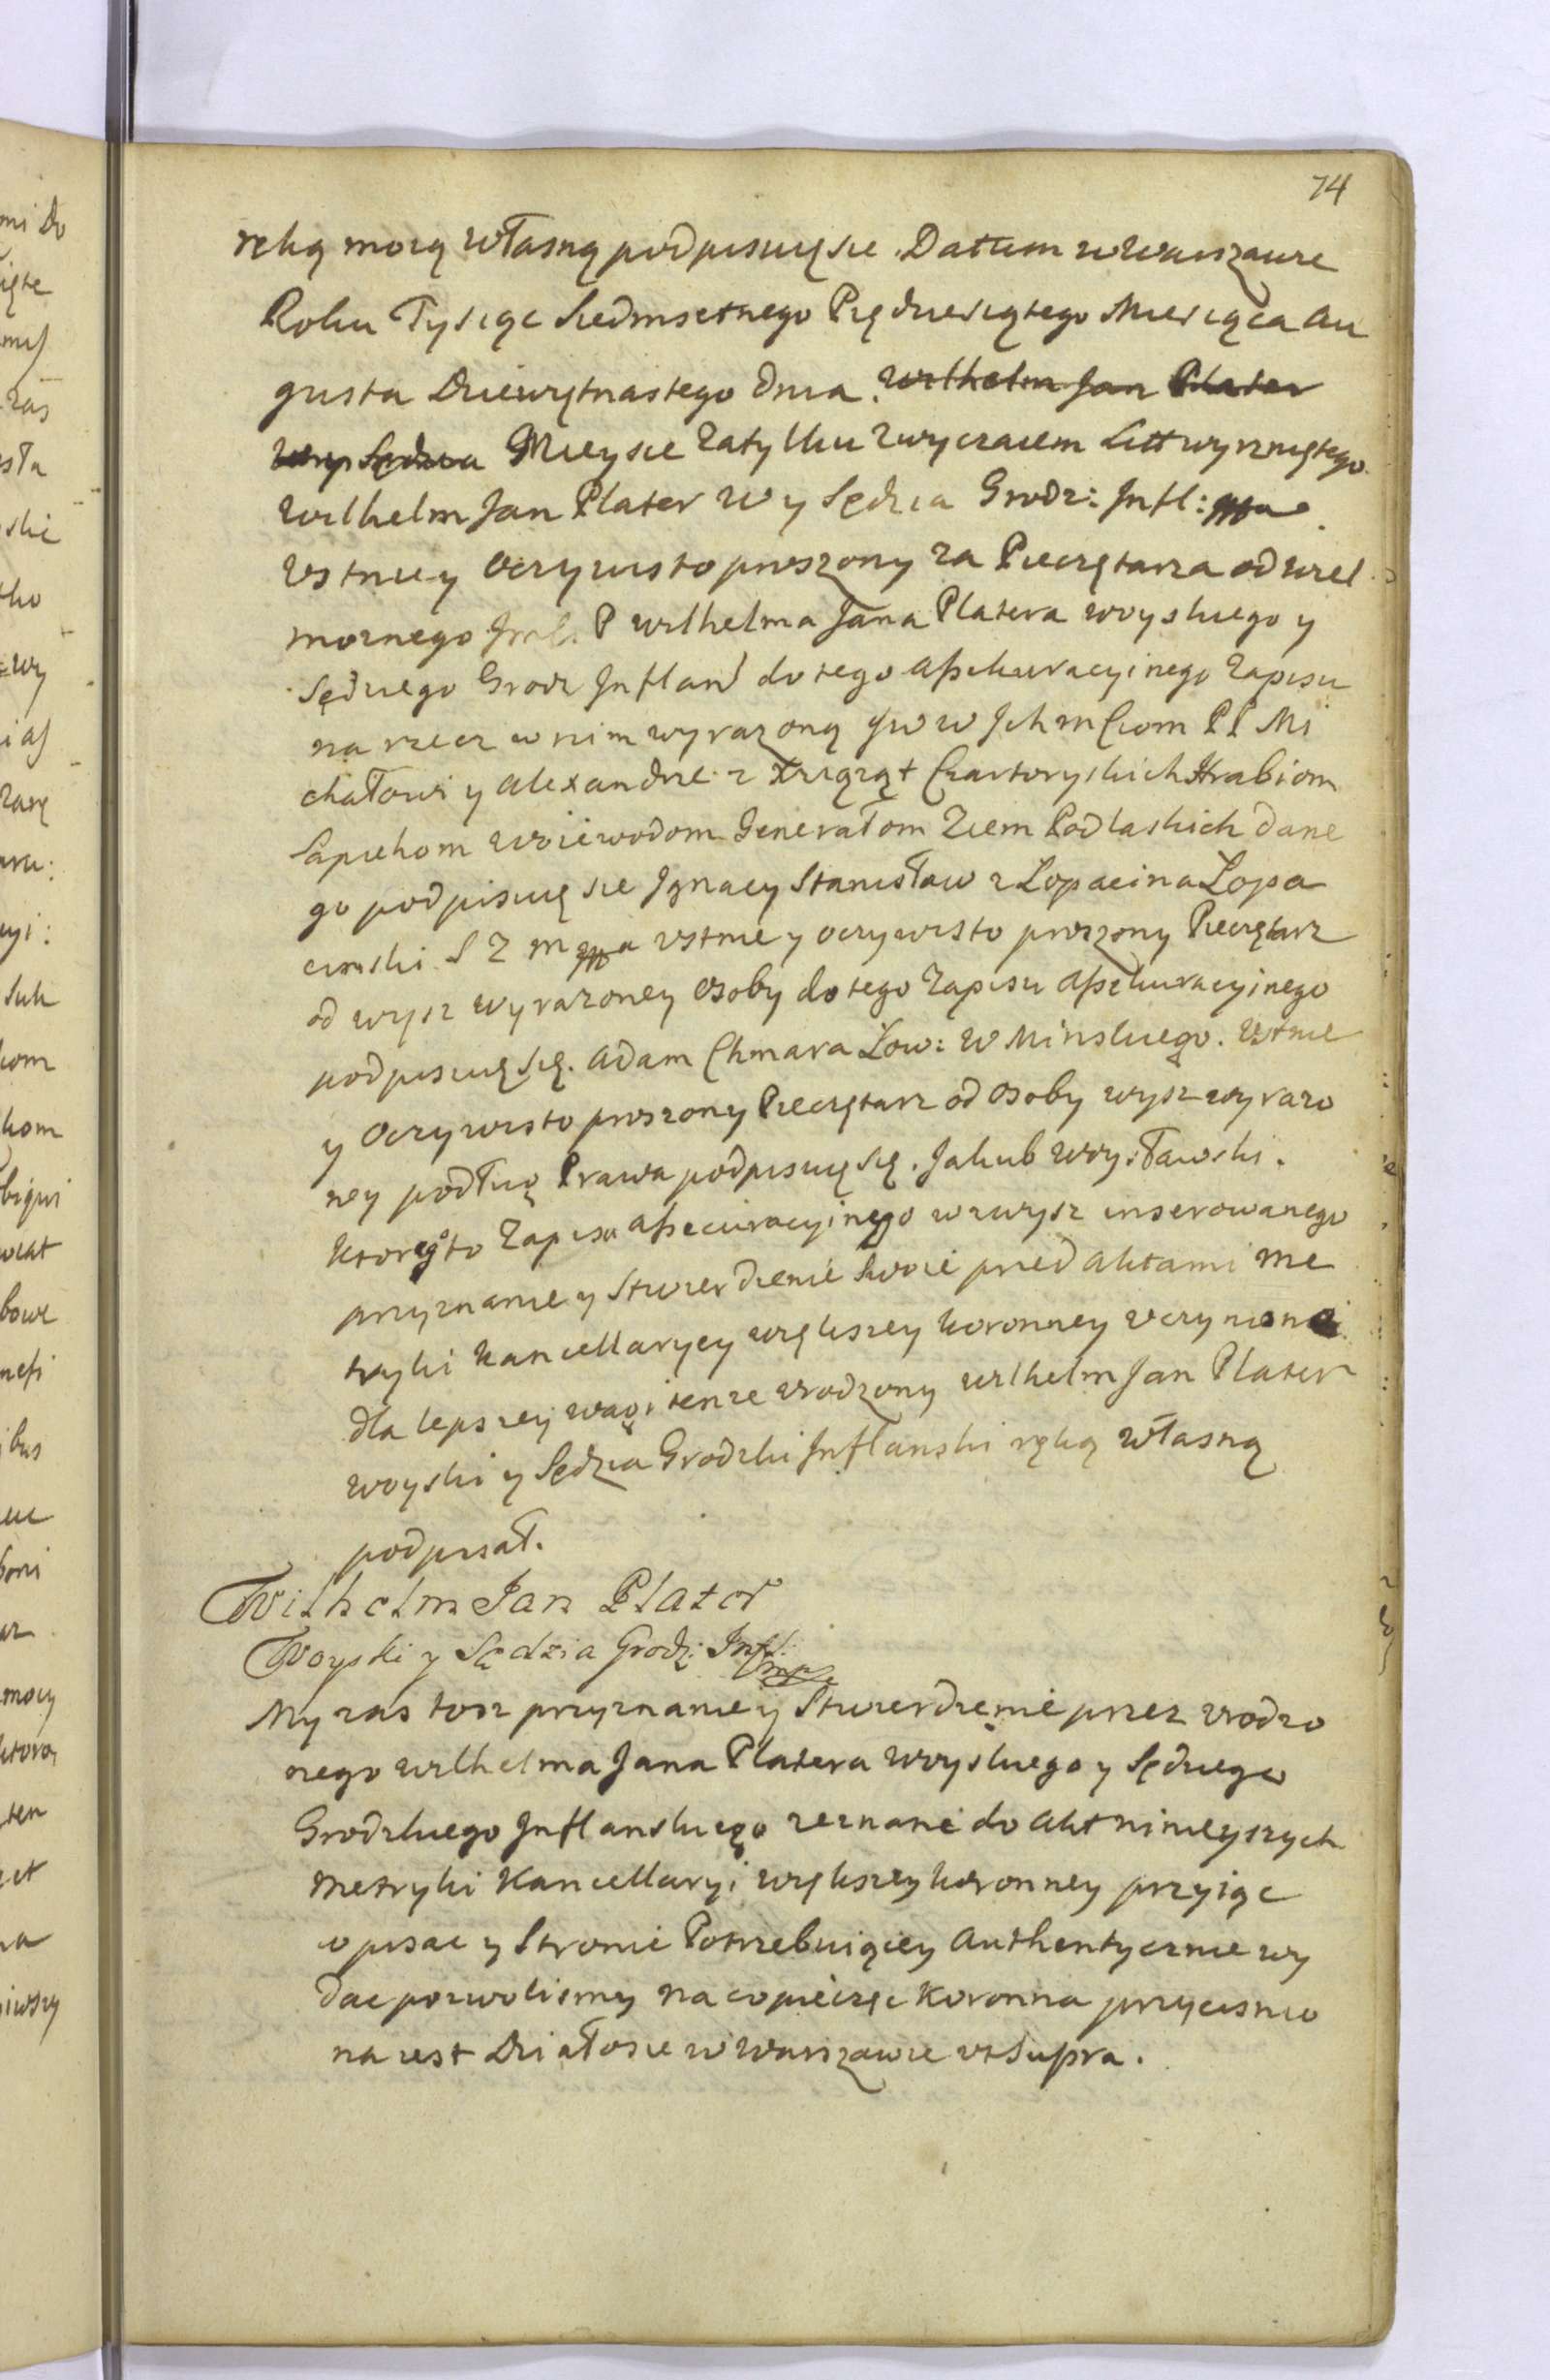 74
ręką moią własną podpisuię sie. Datum w Warszawie
Roku Tysiąc Siedmsetnego Piędziesiątego Miesiąca Au
gusta Dziewiętnastego dnia. Wilhelm Jan Plater
Woys Sędzia Mieysce Zatyłku zwyczaiem Litt wyrzniętego
Wilhelm Jan Plater W y Sędzia Grodz: Infl: mppa
Vstnie y Oczywisto proszony za Pieczętarza od Wiel
moznego P Wilhelma Jana Platera woyskiego y
Sędziego Grodz Infland do tego assekuracyinego Zapisu
na rzecz w nim wyrazoną JWW Ichmciom PP Mi
chałowi y Alexandrze z Xsiąząt Czartoryskich Hrabiom
Sapiehom Woiewodom Generałom Ziem Podlaskich dane
go podpisuię sie Ignacy Stanisław z Łopacina Łopa
cinski S Z M mppa Vstnie y oczywisto proszony Pieczętarz
od wysz wyrazoney Osoby do tego Zapisu assekuracyinego
podpisuię się. Adam Chmara Łow: W Minskiego. Vstnie
y Oczywisto proszony Pieczętarz od Osoby wysz wyrazo
ney podług Prawa podpisuię się. Jakub Woysławski.
Ktorego to Zapisu assecuracyinego wzwysz inserowanego
przyznanie y Stwierdzenie Swoie przed Aktami Me
tryki Kancellaryey większey koronney vczynione
dla lepszey wagi tenze vrodzony Wilhelm Jan Plater
woyski y Sędzia Grodzki Inflanski ręką własną
podpisał.
Wilhelm Jan Plater
Woyski y Sędzia Grodz: Infl:
mpp
My zas tosz przyznanie y Stwierdzenie przez vrodzo
nego Wilhelma Jana Platera Woyskiego y Sędziego
Grodzkiego Inflanskiego zeznane do Akt ninieyszych
Metryki Kancellaryi większey koronney przyiąc
wpisac y Stronie Potrzebuiącey Authentycznie wy
dac pozwolismy na co pieczęc Koronna przycisnio
na iest Działosie w Warszawie vt Supra.